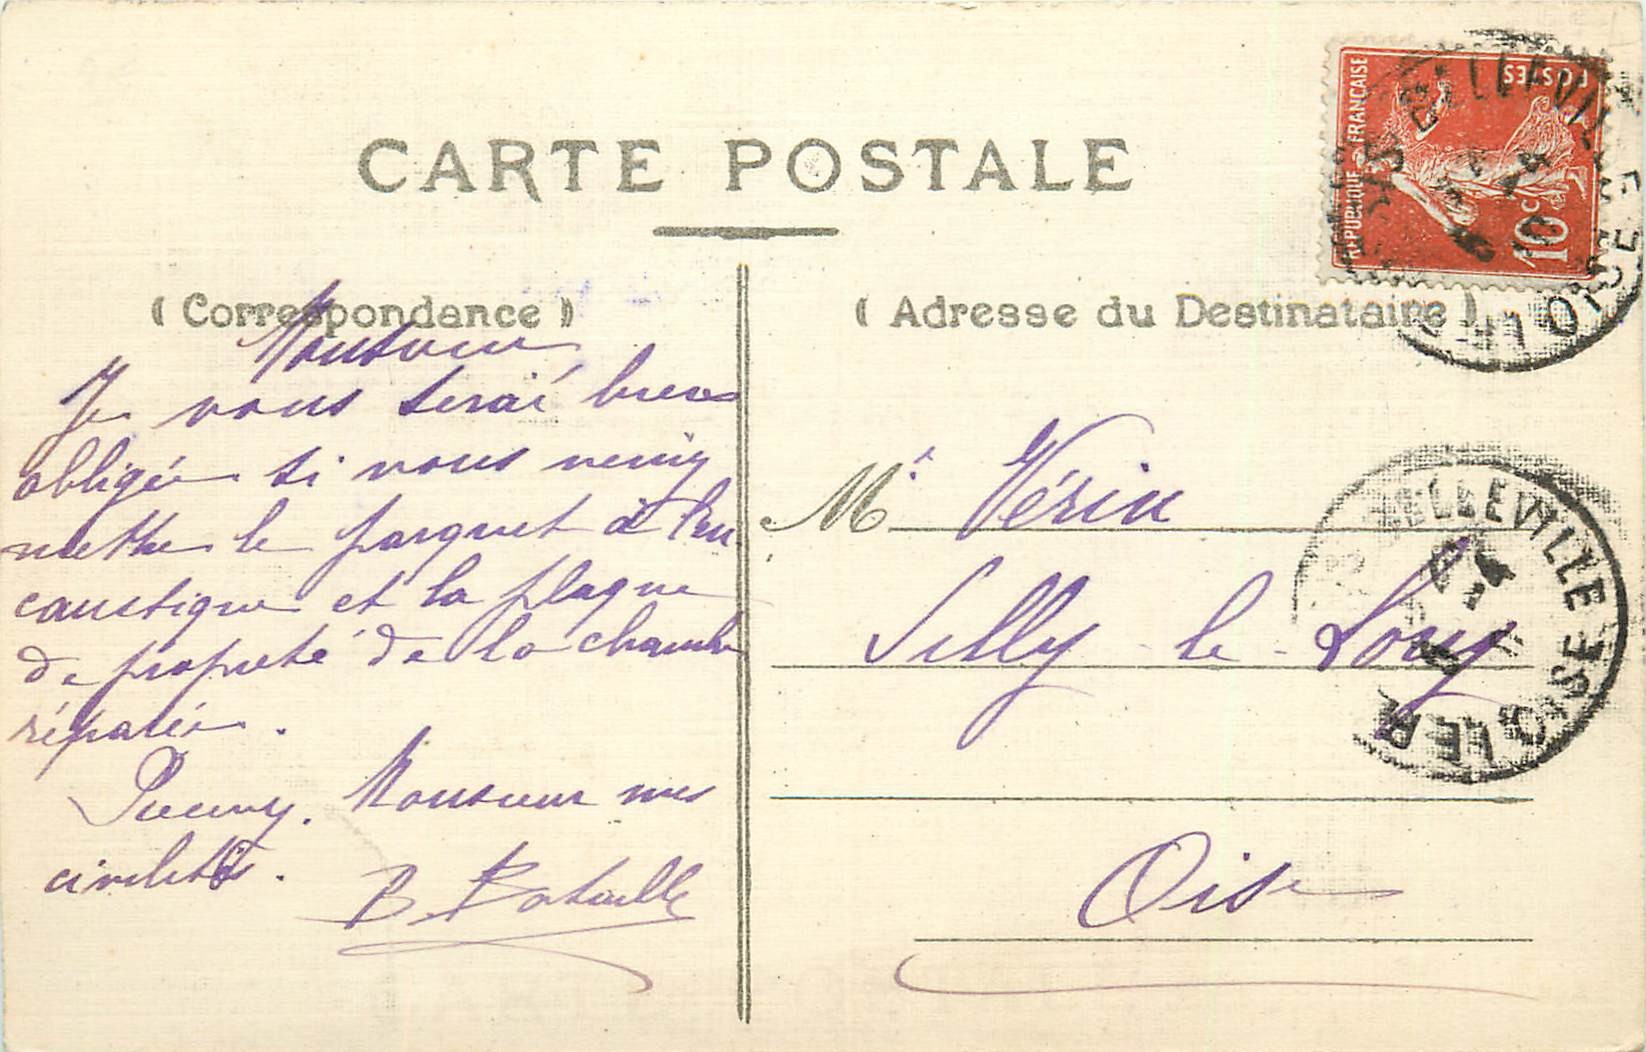 CARTE POSTALE
( Correspondance )
Monsieur
Je vous serai bien
obligée si vous veniez
mettre le parquet à l'en
caustique et la plaque
de propreté de la chambre
réparée.
Monsieur mes
civilités.
B. Bataille
( Adresse du Destinataire )
Mr Vérin
Silly-le-Long
Oise
REPUBLIQUE FRANÇAISE
POSTES
10c
BELLEVILLE
BELLEVILLE